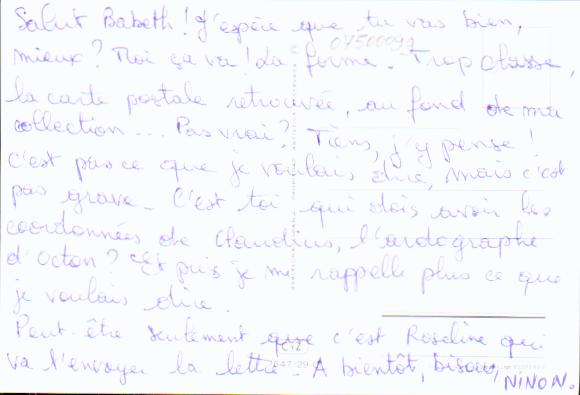 Salut Babeth ! J'espère que tu vas bien,
mieux ? Moi ça va ! La forme. Trop classe,
07500099
la carte postale retrouvée, au fond de ma
collection ... Pas vrai ? Tiens, j'y pense !
C'est pas ce que je voulais dire, mais c'est
pas grave. C'est toi qui dois avoir les
coordonnées de Claudius, l'ardographe
d'Octon ? Et puis je me rappelle plus ce que
je voulais dire.
Peut-être seulement que c'est Roseline qui
va t'envoyer la lettre. A bientôt, bisou,
NINON.